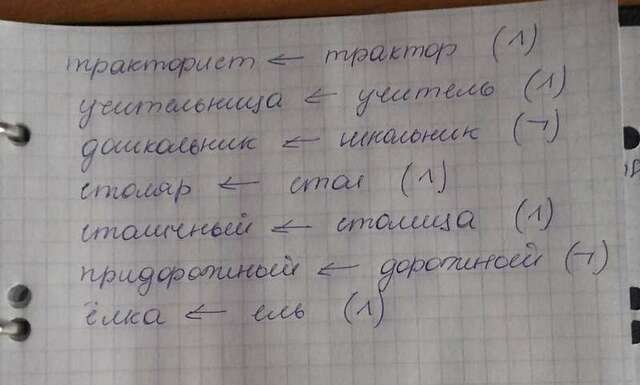 тракторист ← трактор (^)
учительница ← учитель (^)
дошкольник ← школьник (¬)
столяр ← стол (^)
столичный ← столица (^)
придорожный ← дорожной (¬)
ёлка ← ель (^)